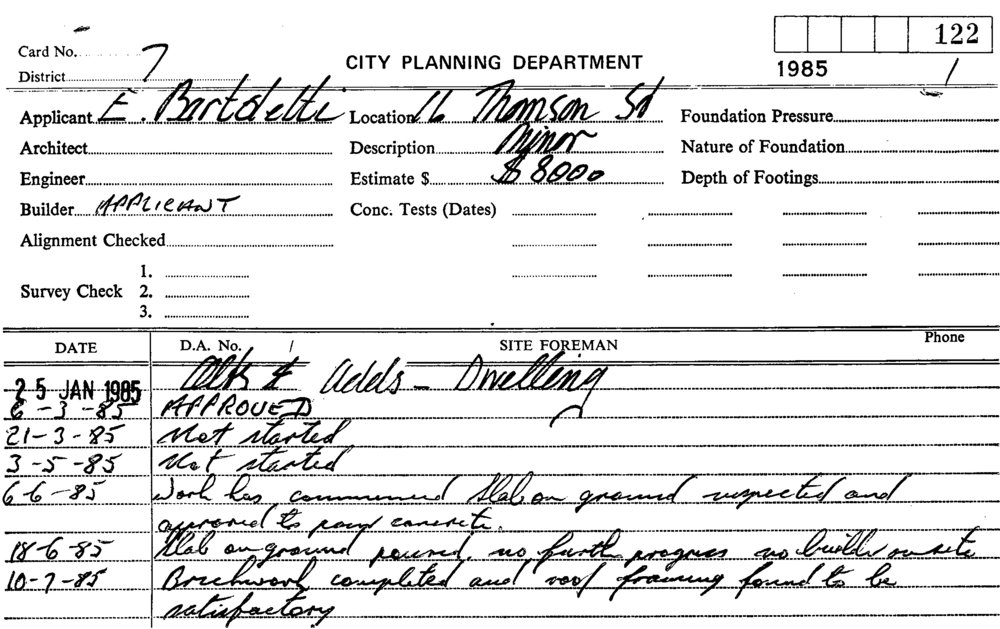 122
Card No. 7
CITY PLANNING DEPARTMENT
1985
District
Applicant E. Bartoletti Location 16 Thomson St Foundation Pressure
Architect Description Minor Nature of Foundation
Engineer Estimate $ $ 8000 Depth of Footings
Builder APPLICANT Conc. Tests (Dates)
Alignment Checked
1.
Survey Check 2.
3.
DATE D.A. No. / SITE FOREMAN Phone
25 JAN 1985 Alts & Adds - Dwelling
6-3-85 APPROVED
21-3-85 Not started
3-5-85 Not started
6-6-85 Work has commenced Slab on ground inspected and
approved to pour concrete.
18-6-85 Slab on ground poured. no furth progress no builder on site
10-7-85 Brickwork completed and roof framing found to be
satisfactory